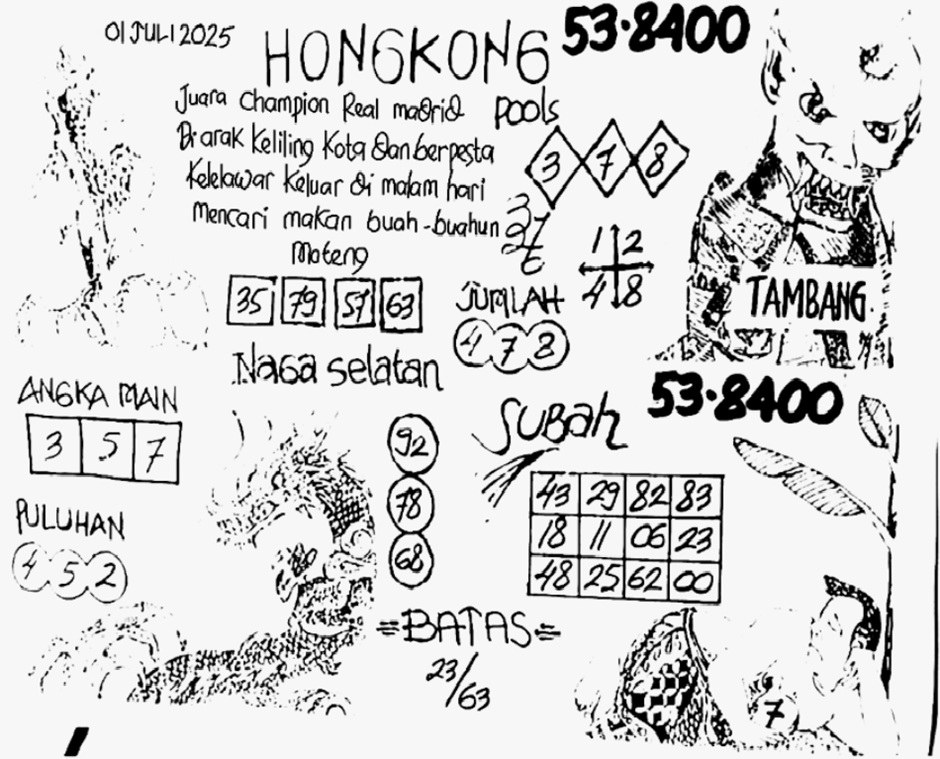 01 JULI 2025
HONGKONG
53.8400
Juara Champion Real madrid
pools
Di arak Keliling Kota dan berpesta
Kelelawar Keluar di malam hari
Mencari makan buah-buahun
Mateng
3 7 8
1 2
4 8
TAMBANG
35 79 57 63
JUMLAH
4 7 8
Naga selatan
53.8400
ANGKA MAIN
3 5 7
SUBAH
92
78
68
43 29 82 83
18 11 06 23
48 25 62 00
PULUHAN
4 5 2
=BATAS=
23/63
7